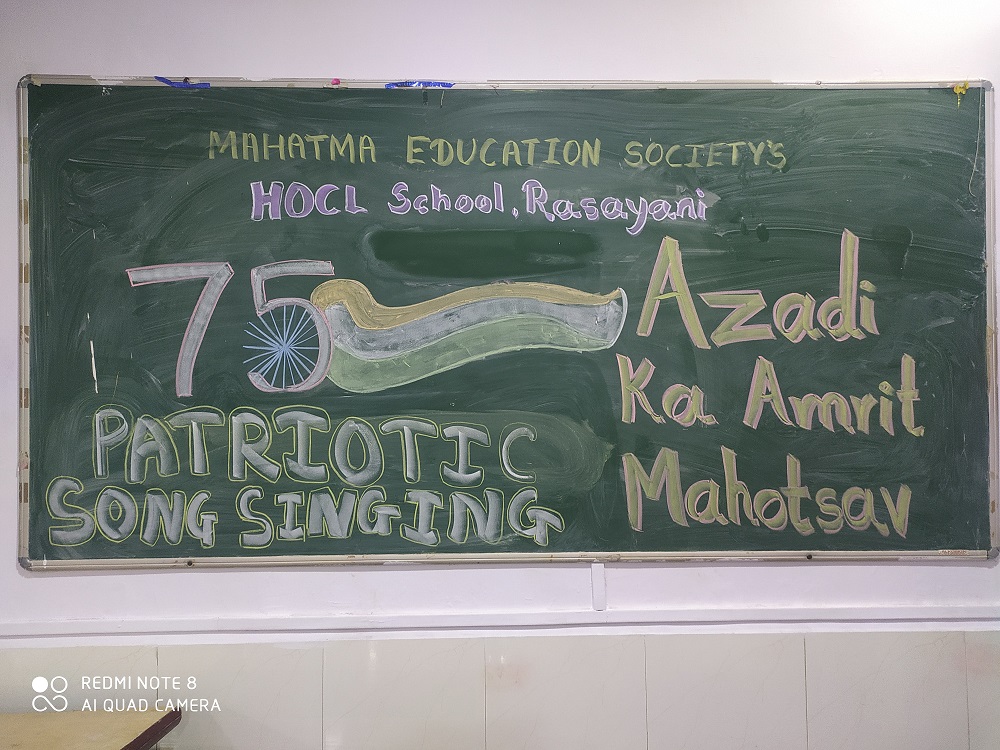 MAHATMA EDUCATION SOCIETY'S
HOCL School, Rasayani
75
Azadi
Ka Amrit
Mahotsav
PATRIOTIC
SONG SINGING
REDMI NOTE 8
AI QUAD CAMERA